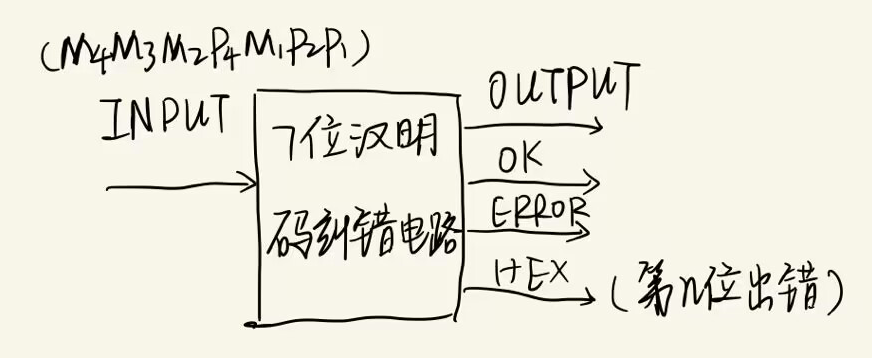 (M₄M₃M₂P₄M₁P₂P₁)
INPUT
7位汉明
码纠错电路
OUTPUT
OK
ERROR
HEX (第n位出错)